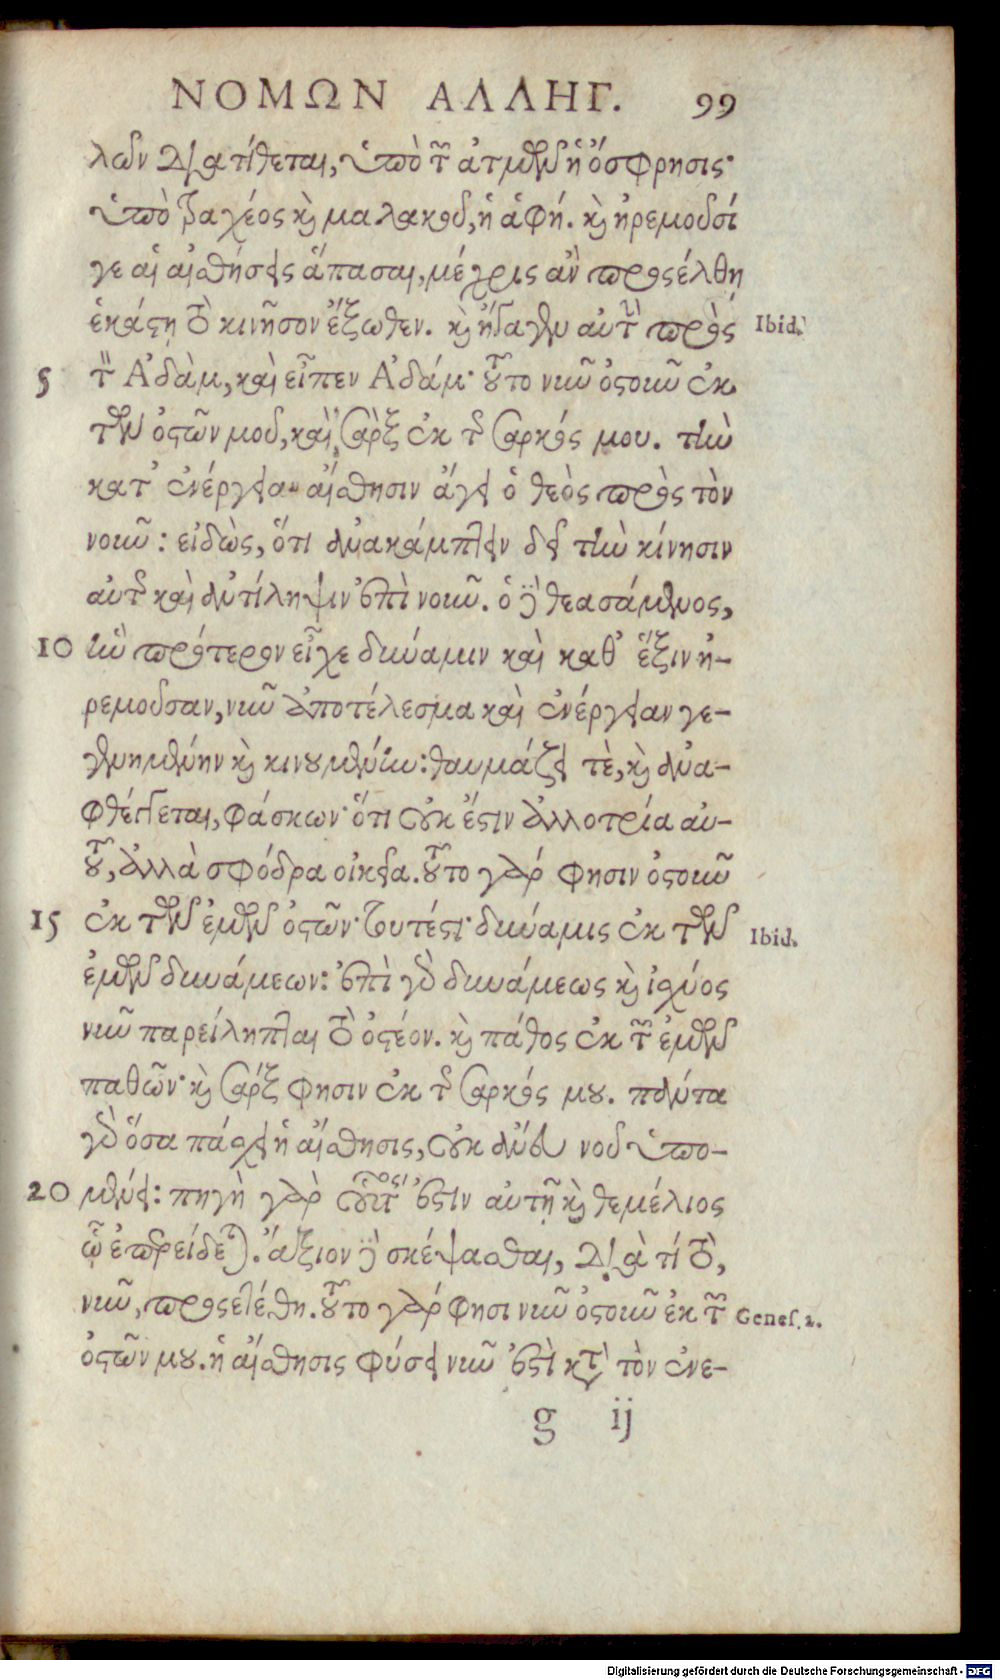 ΝΟΜΩΝ ΑΛΛΗΓ. 99
λῶν διατίθεται, ὑπὸ τῶν ἀτμῶν ἡ ὄσφρησις·
ὑπὸ τραχέος καὶ μαλακοῦ, ἡ ἁφή. καὶ ἠρεμοῦσί
γε αἱ αἰσθήσεις ἅπασαι, μέχρις ἂν προσέλθῃ
ἑκάστῃ τὸ κινῆσον ἔξωθεν. καὶ ἤγαγεν αὐτὴν πρὸς Ibid.
5 τὸν Ἀδὰμ, καὶ εἶπεν Ἀδάμ· τοῦτο νῦν ὀστοῦν ἐκ
τῶν ὀστῶν μου, καὶ σὰρξ ἐκ τῆς σαρκός μου. τὴν
κατ᾽ ἐνέργειαν αἴσθησιν ἄγει ὁ θεὸς πρὸς τὸν
νοῦν: εἰδὼς, ὅτι ἀνακάμπτειν δεῖ τὴν κίνησιν
αὐτῆς καὶ ἀντίληψιν ἐπὶ νοῦν. ὁ δὲ θεασάμενος,
10 ἣν πρότερον εἶχε δύναμιν καὶ καθ᾽ ἕξιν ἠ-
ρεμοῦσαν, νῦν ἀποτέλεσμα καὶ ἐνέργειαν γε-
γενημένην καὶ κινουμένην: θαυμάζει τὲ, καὶ ἀνα-
φθέγγεται, φάσκων· ὅτι οὐκ ἔστιν ἀλλοτρία αὐ-
τοῦ, ἀλλὰ σφόδρα οἰκεῖα. τοῦτο γάρ φησιν ὀστοῦν
15 ἐκ τῶν ἐμῶν ὀστῶν· τουτέστι· δύναμις ἐκ τῶν Ibid.
ἐμῶν δυνάμεων: ἐπὶ γὰρ δυνάμεως καὶ ἰσχύος
νῦν παρείληπται τὸ ὀστέον. καὶ πάθος ἐκ τῶν ἐμῶν
παθῶν· καὶ σάρξ φησιν ἐκ τῆς σαρκός μου. πάντα
γὰρ ὅσα πάσχει ἡ αἴσθησις, οὐκ ἄνευ νοῦ ὑπο-
20 μένει: πηγὴ γὰρ οὗτός ἐστιν αὐτῇ καὶ θεμέλιος
ᾧ ἐπερείδεται. ἄξιον δὲ σκέψασθαι, διὰ τί τὸ,
νῦν, προσετέθη. τοῦτο γάρ φησι νῦν ὀστοῦν ἐκ τῶν Genes. 2.
ὀστῶν μου. ἡ αἴσθησις φύσει νῦν ἐστὶ κατὰ τὸν ἐνε-
g ij
Digitalisierung gefördert durch die Deutsche Forschungsgemeinschaft - DFG